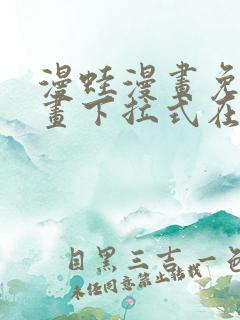 漫蛙漫畫免
畫下拉式在
目黑三吉一色
未经同意禁止转载